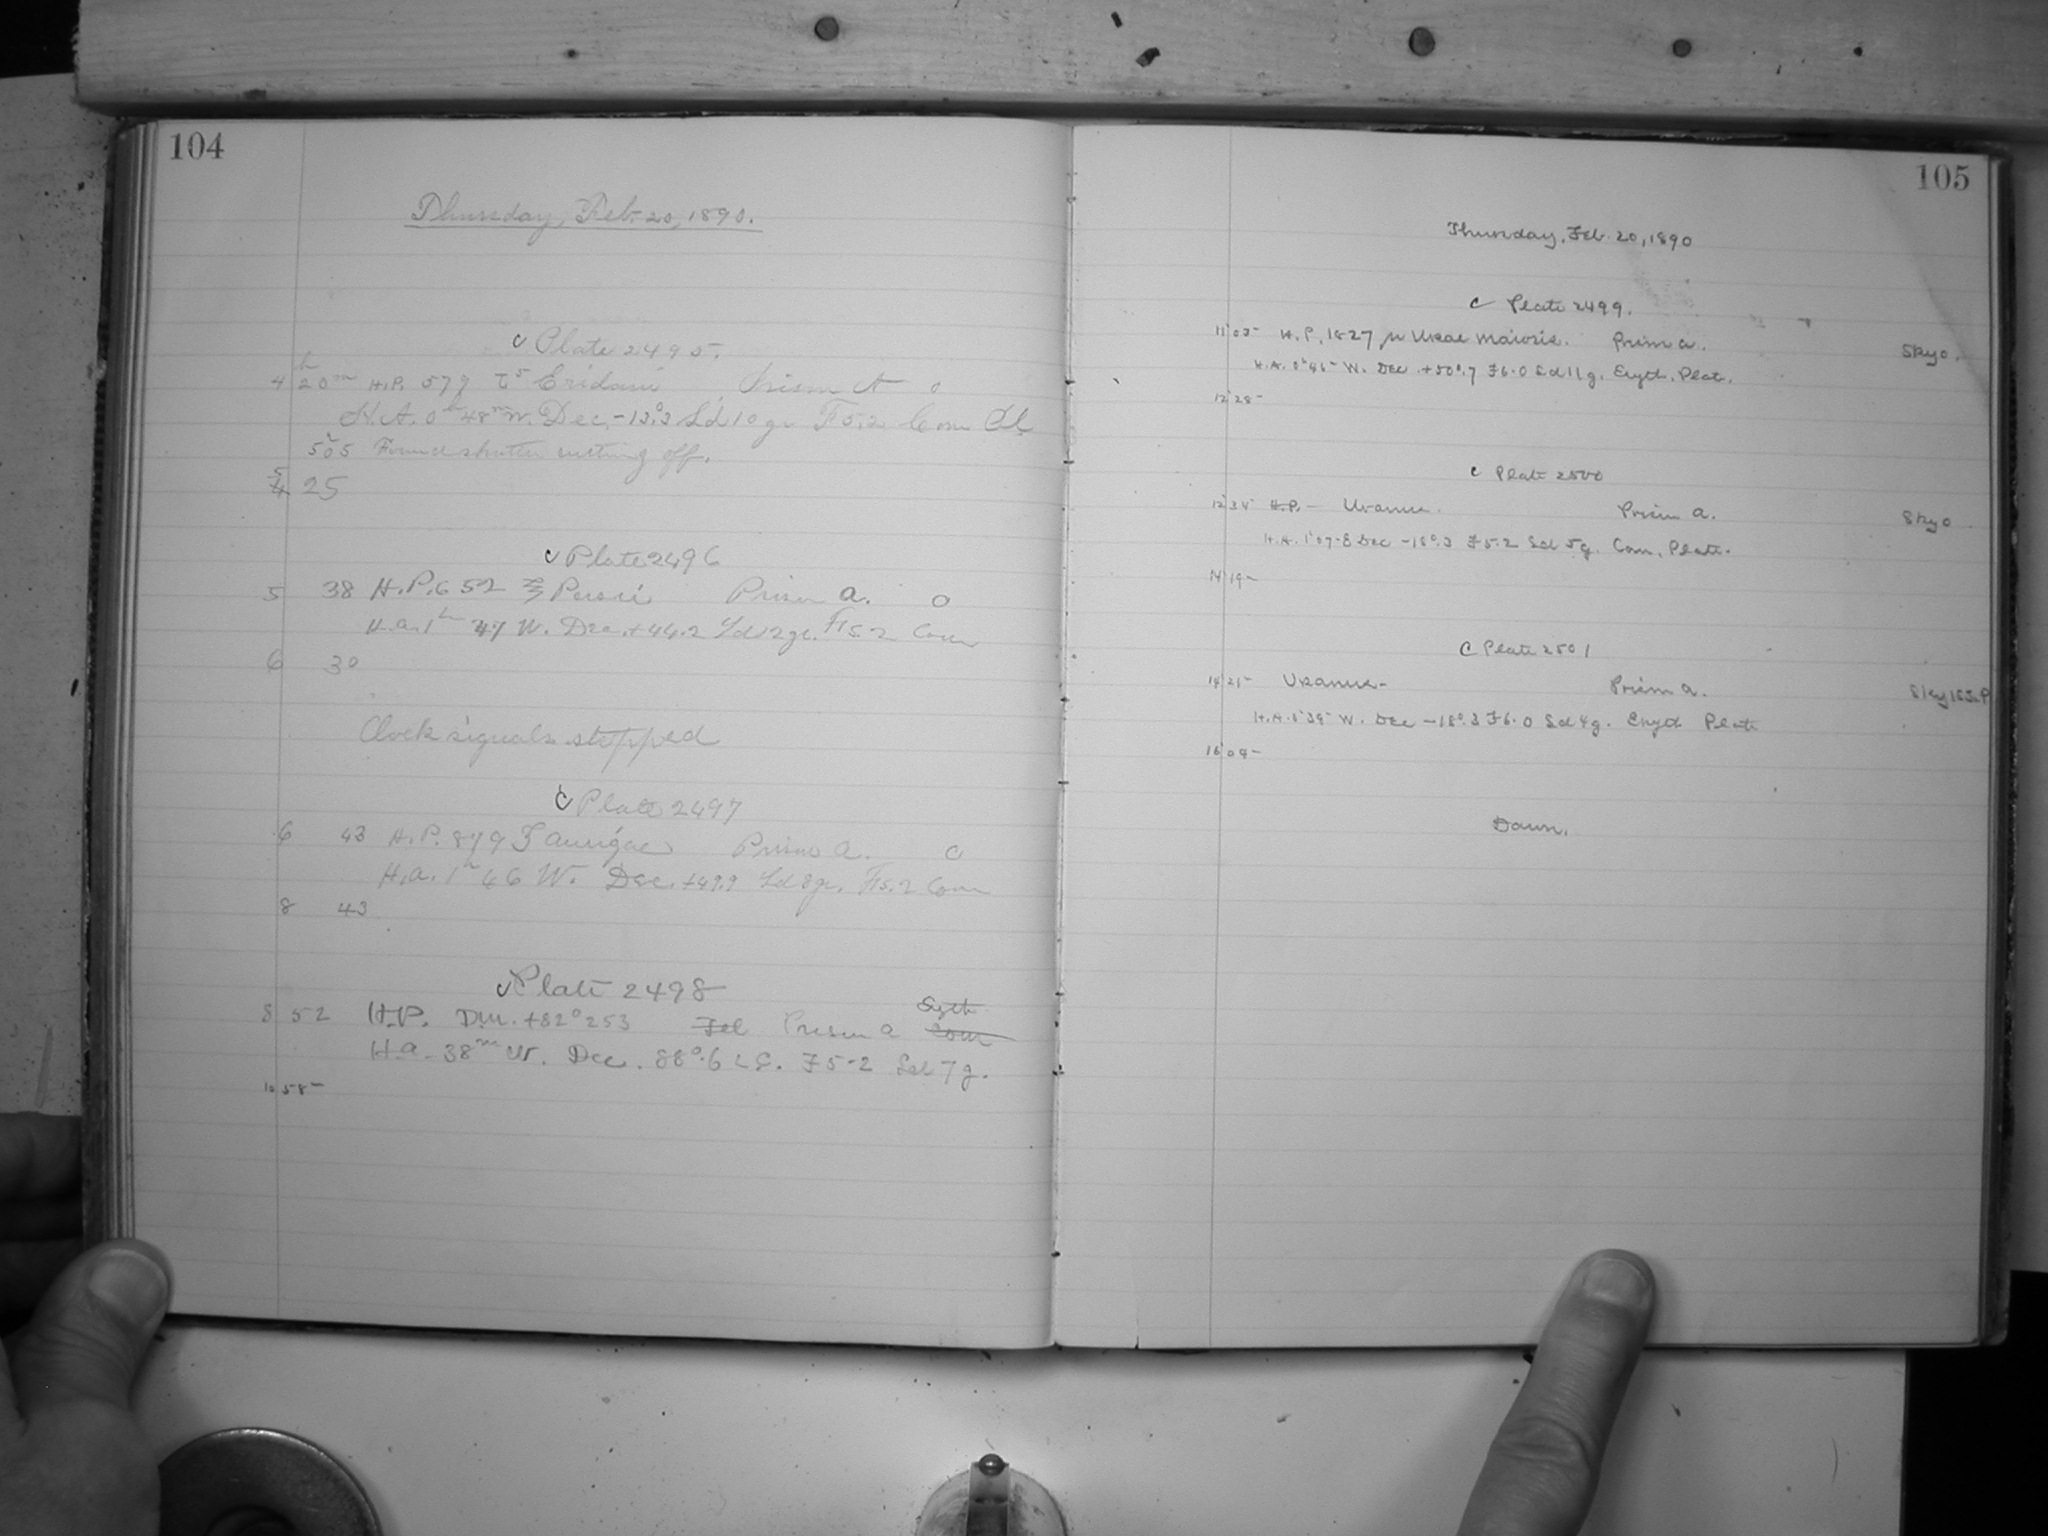 104
Thursday, Feb. 20, 1890.
C Plate 2495.
4 h 20m H.P. 579 τ5 Eridani Prism A 0
H.A. 0h 48m W. Dec. -13°.3 Sd 10 gr F5.2 Com Pl.
5 05 Found shutter cutting off.
5 4 25
C Plate 2496
5 38 H.P. 652 Persei Prism a. 0
H.a. 1h 47 W. Dec. +44.2 Sd 12 gr. F15.2 Com
6 30
Clock signals stopped
C Plate 2497
6 43 H.P. 879 ζ Aurigae Prism a. 0
H.a. 1h 46 W. Dec. +49.9 Sd 8 gr. F15.2 Com
8 43
C Plate 2498
8 52 H.P. D.M. +82°253 Prism a Com
H.a. 38m W. Dec. 88°.6 L.C. F5.2 Sd 7 g.
10 58-
105
Thursday, Feb. 20, 1890
C Plate 2499.
11 03- H.P. 1827 μ Ursae Maioris. Prism a. Sky 0.
H.A. 0h 46- W. Dec +50°.7 F6.0 Sd 11 g. Eryth. Plat.
12 28-
C Plate 2500
12 34- H.P. - Uranus. Prism a. Sky 0
H.A. 1h 07- E Dec -18°.3 F5.2 Sd 5 g. Com. Plate.
14 19-
C Plate 2501
14 21- Uranus- Prism a.
H.A. 0h 39- W. Dec -18°.3 F6.0 Sd 4 g. Eryth Plate
16 04-
Dawn.